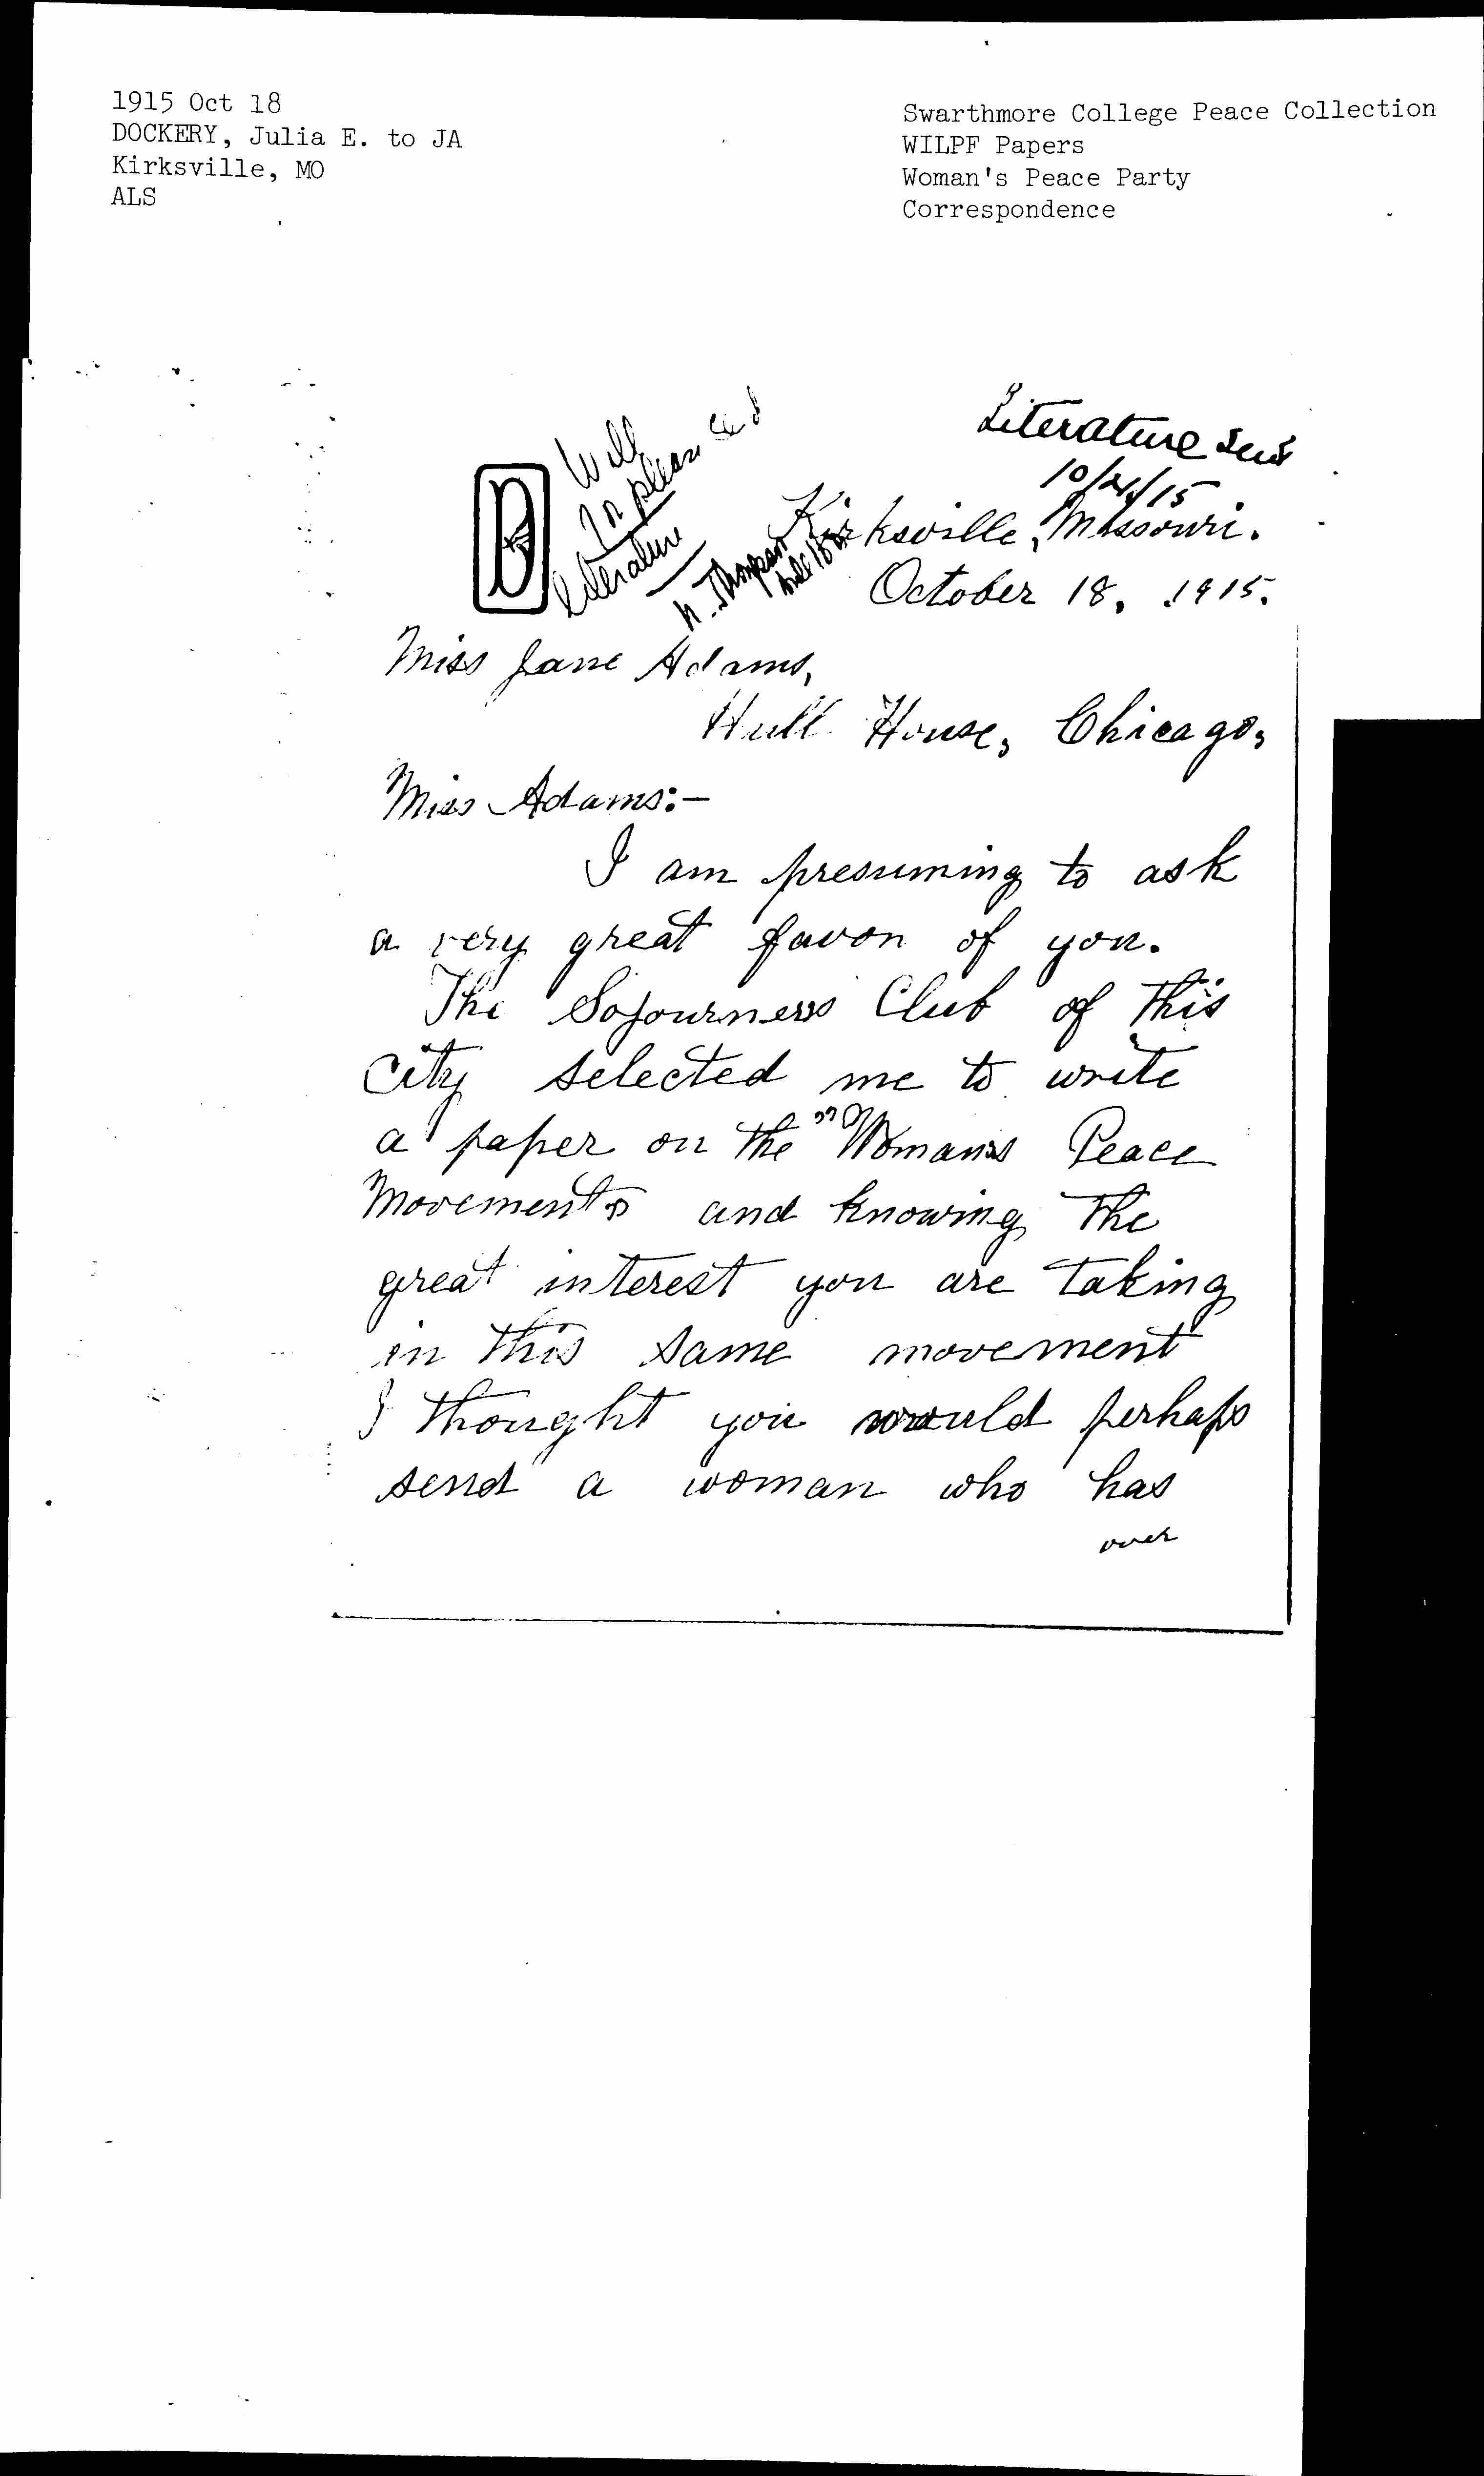 1915 Oct 18
DOCKERY, Julia E. to JA
Kirksville, MO
ALS
Swarthmore College Peace Collection
WILPF Papers
Woman's Peace Party
Correspondence
Will
please
literature
Literature sent
10/21/15
Kirksville, Missouri.
October 18, 1915.
Miss Jane Adams,
Hull House, Chicago,
Miss Adams:-
I am presuming to ask
a very great favor of you.
The Sojourners Club of this
city selected me to write
a paper on the "Woman's Peace
Movement" and knowing the
great interest you are taking
in this same movement
I thought you would perhaps
send a woman who has
over